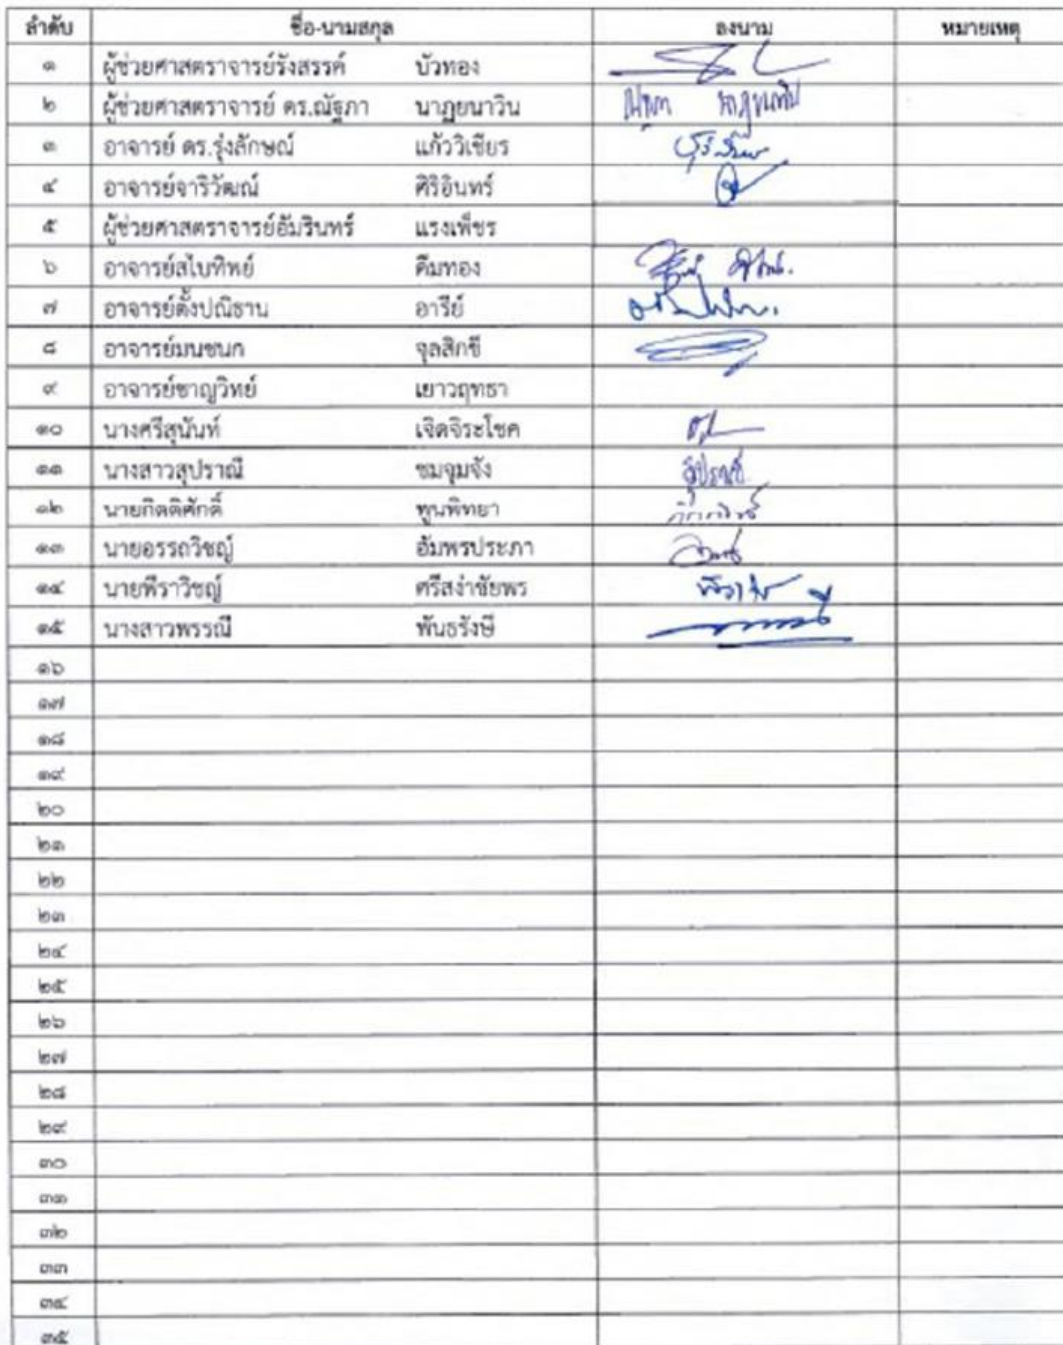 ลำดับ ชื่อ-นามสกุล ลงนาม หมายเหตุ
๑ ผู้ช่วยศาสตราจารย์รังสรรค์ บัวทอง
๒ ผู้ช่วยศาสตราจารย์ ดร.ณัฐภา นาฏยนาวิน
๓ อาจารย์ ดร.รุ่งลักษณ์ แก้ววิเชียร
๔ อาจารย์จาริวัฒณ์ ศิริอินทร์
๕ ผู้ช่วยศาสตราจารย์อัมรินทร์ แรงเพ็ชร
๖ อาจารย์สไบทิพย์ คีมทอง
๗ อาจารย์ตั้งปณิธาน อารีย์
๘ อาจารย์มนชนก จุลสิกขี
๙ อาจารย์ชาญวิทย์ เยาวฤทธา
๑๐ นางศรีสุนันท์ เจิดจิระโชค
๑๑ นางสาวสุปราณี ชมจุมจัง สุปราณี
๑๒ นายกิตติศักดิ์ พูนพิทยา
๑๓ นายอรรถวิชญ์ อัมพรประภา
๑๔ นายพีราวิชญ์ ศรีสง่าชัยพร
๑๕ นางสาวพรรณี พันธรังษี
๑๖
๑๗
๑๘
๑๙
๒๐
๒๑
๒๒
๒๓
๒๔
๒๕
๒๖
๒๗
๒๘
๒๙
๓๐
๓๑
๓๒
๓๓
๓๔
๓๕